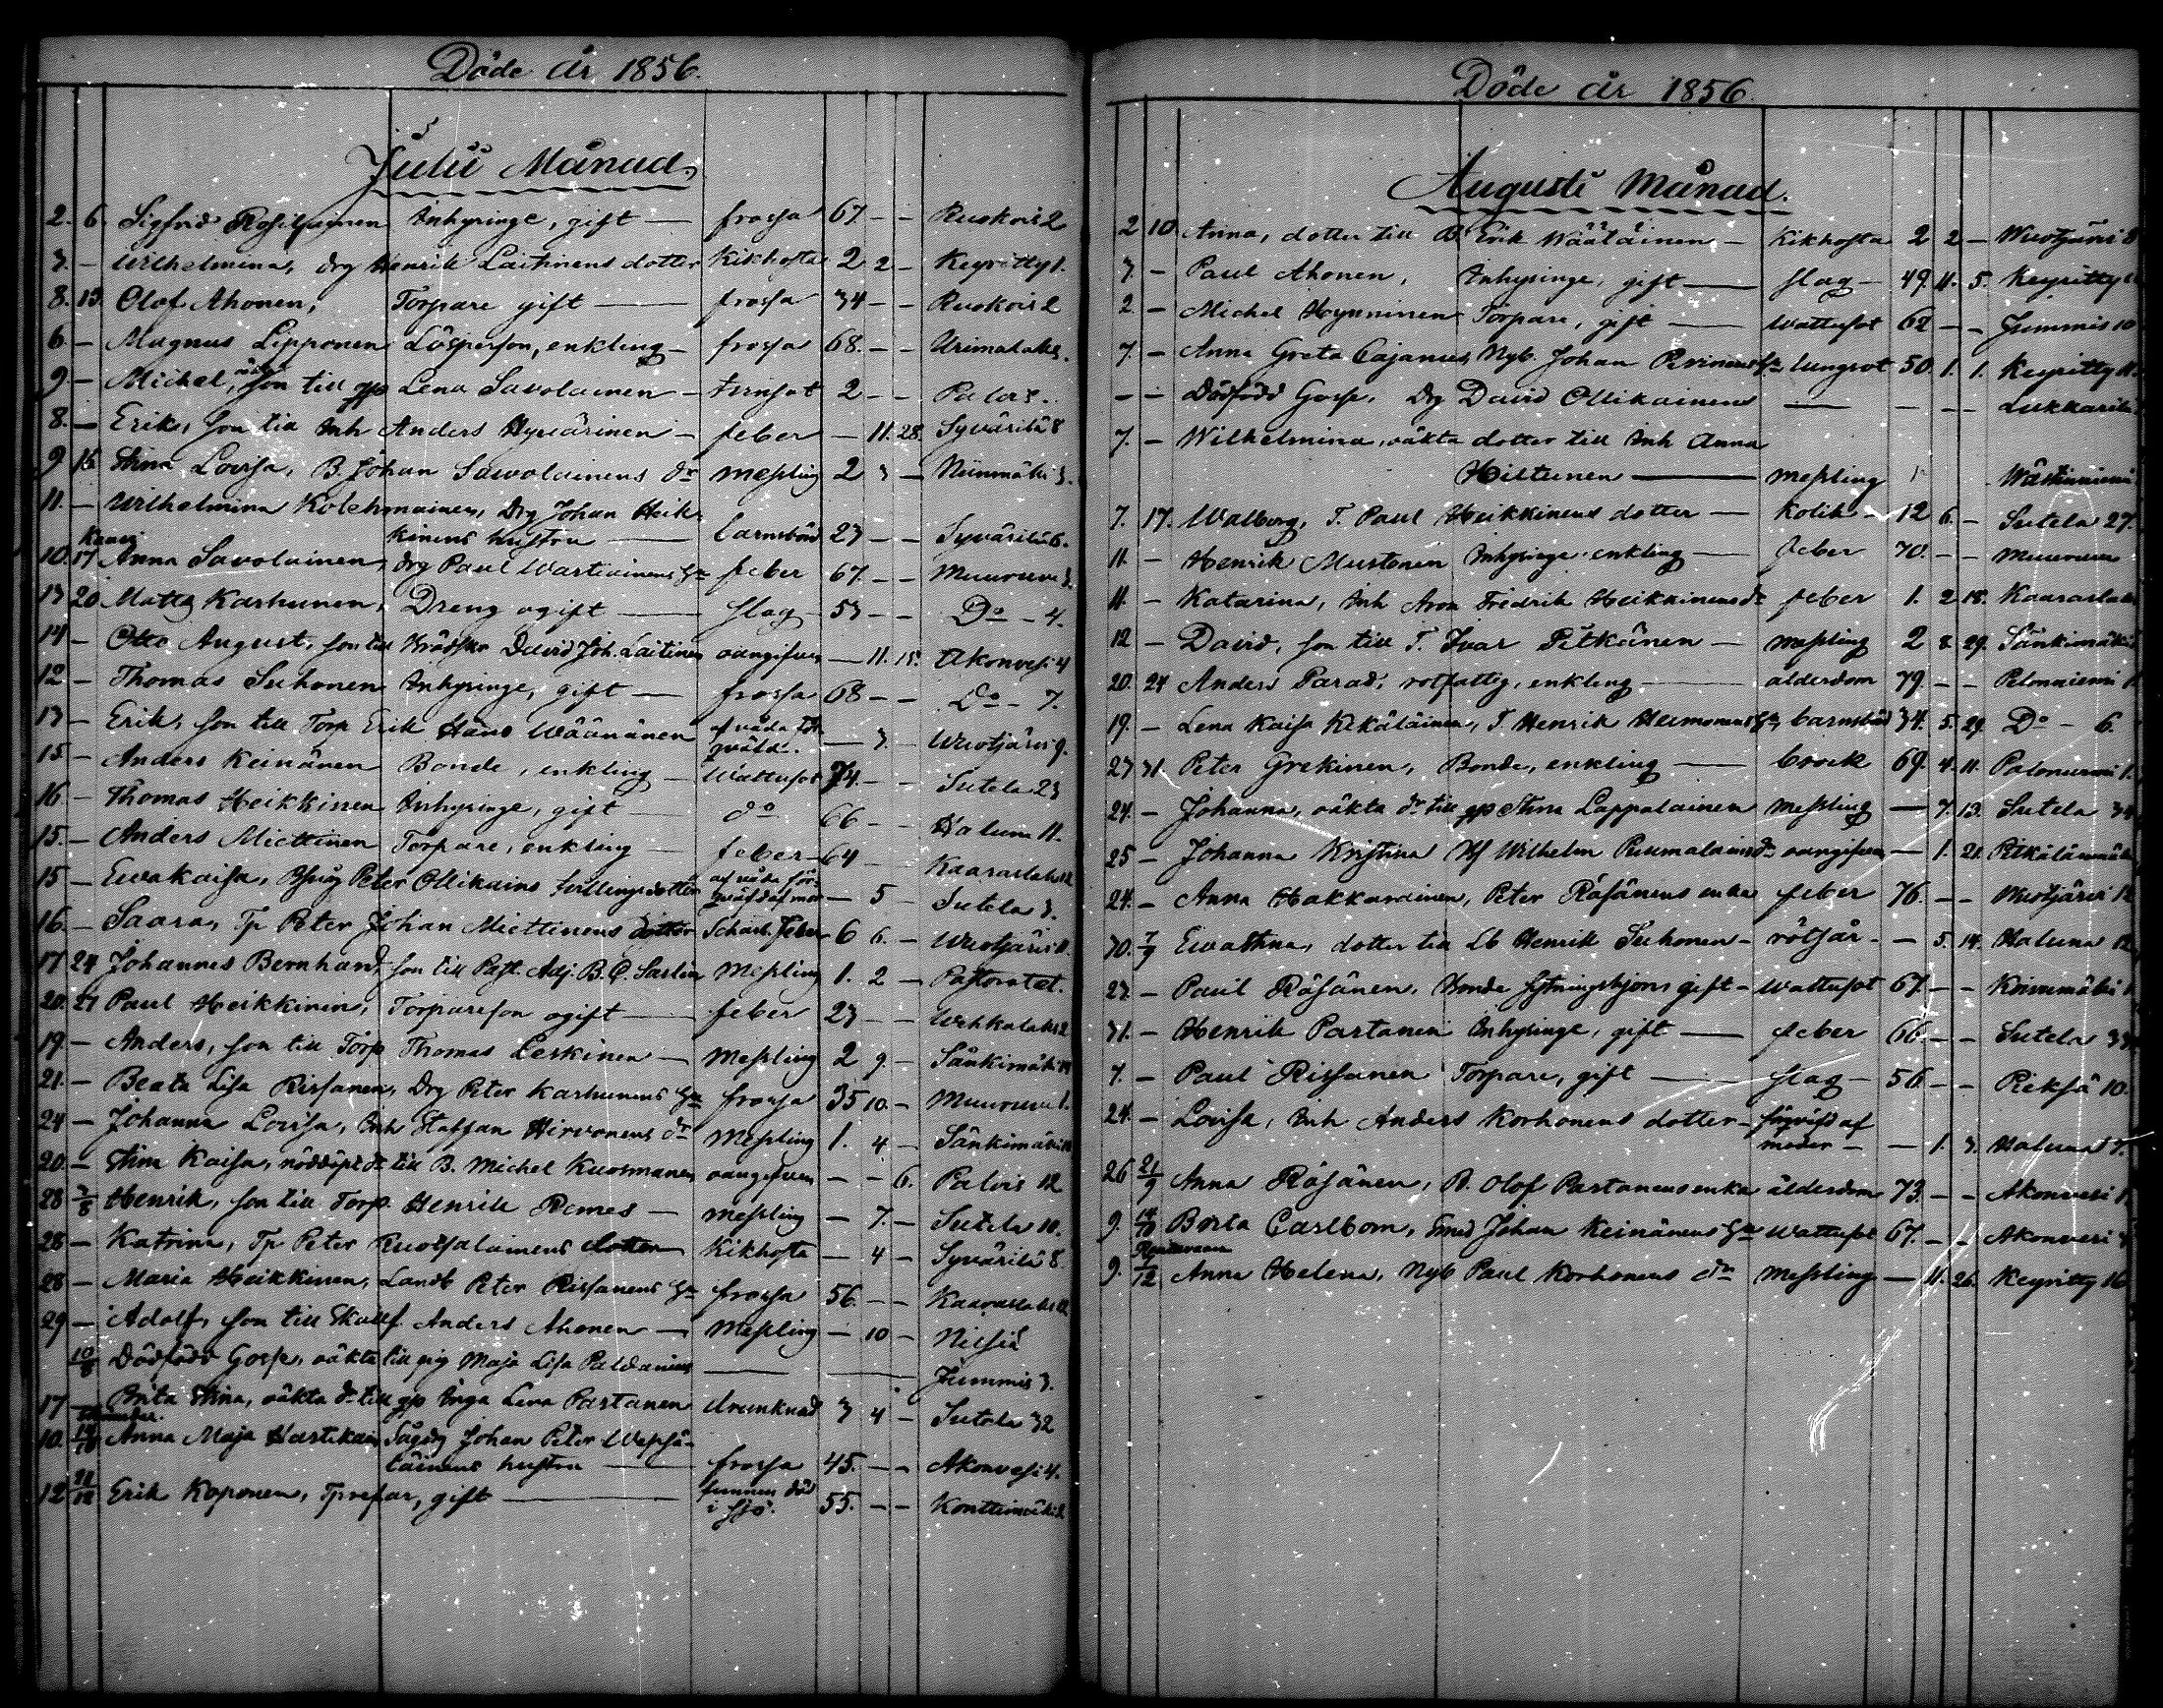 Döde år 1856.
Julii Månad.
2. 6. Sigfrid Inhysinge, gift — frossa 67 - - Ruokois 2
3. - Wilhelmina, drg Henrik Laitinens dotter kikhosta 2 2 - Keyritty 1.
8. 13. Olof Ahonen, Torpare gift — frossa 34 - - Ruokois 2
6. - Magnus Lipponen Lösperson, enkling - frossa 68. - - Urimolaks.
9 - Michel, oäkta son till gp Lena Savolainen - 2 - - Palois..
8. - Erik, son till Inh Anders Hyvärinen - feber - 11. 28. Syvärilä 8
9 16 Stina Lovisa, B. Johan Sawolainens dr messling 2 3 - Niinimäki 3.
11. - Wilhelmina Kolehmainen, Drg Johan Heik-
kinens hustru — barnsbörd 23 - - Syvärilä 6.
10. 17 Anna Savolainen, drg Paul Wartiainens Hu feber 67. - - Muuruvesi 3.
13 20 Matts Karhunen, Dreng ogift — slag - 53 - - Do - 4.
14 - Otto August, son till David Joh. Laitinen oangifven - 11. 15. Akonvesi 4
12 - Thomas Suhonen Inhysinge, gift — frossa 68 - - Do - 7.
13 - Erik, son till Torp Erik Hans Wäänänen af våda för-
qväfd. - 3. - Wuotjärvi 9.
15 - Anders Keinänen Bonde, enkling - Wattusot 74. - - Sutela 23
16 - Thomas Heikkinen Inhysinge, gift — do 66 - - Haluna 11.
15. - Anders Miettinen Torpare, enkling — feber - 64 - Kaaraslaks 12
15 - Ewakaisa, Peter Ollikains tvillingsdotter af våda för-
qväfd af mor - 5 - Sutela 3.
16. - Saara, Tp Peter Johan Miettinens dotter Scharl. Feber 6 6. - Wuotjärvi 11.
17 24 Johannes Bernhard son till Past. Adj. B. C. Sarlin Messling 1. 2 - Pastoratet.
20. 27 Paul Heikkinen, Torpareson ogift — feber 23 - - Wehkalaks 2
19. - Anders, son till Torp Thomas Leskinen - Messling 2 9. - Sänkimäki
21. - Beata Lisa Rissanen, Drg Peter Karhunens Hu frossa 35 10. - Muuruvesi 1.
24 - Johanna Lovisa, Inh Staffan Hirvonens dr Messling 1. 4 - Sänkimäki
20. - Stina Kaisa, nöddöpt dr till B. Michel Kuosmanen oangifven - - 6. Palois 12
28 3/8 Henrik, son till Torp. Henrik Remes - messling - 7. - Sutela 10.
28 - Katrina, Tp Peter Ruotsalainens dotter Kikhosta - 4 - Syvärilä 8.
28 - Maria Heikkinen, Landb Peter Rissanens Hu frossa 56. - - Kaaraslaks 12
29 - Adolf, son till Skallf. Anders Ahonen - Messling - 10 - Nilsiä
10/8 Dödfödd Gosse, oäkta till pig Maja Lisa Paldanius — Jummis 3.
17 - Brita Stina, oäkta dr till gp Inga Lena Partanen drunknad 3 4 - Sutela 32
10. Anna Maja Hartikain Johan Peter Wepsä-
läinens hustru — frossa 45. - - Akonvesi 4.
12 21/12 Erik Koponen, gift — funnen död
i sjö. 55. - - Konttimäki 2
Döde år 1856.
Augusti Månad.
2 10. Anna, dotter till B. Erik Wäätäinen - Kikhosta 2 2 - Wuotjärvi 8
3 - Paul Ahonen, Inhysinge, gift — slag - 49. 11. 5. Keyritty
2 - Michel Hoynninen Torpare, gift — Wattusot 62 - - Jummis 10
7. - Anna Greta Cajanus, Nyb. Johan Hu lungsot 50. 1. 1. Keyritty 11.
- - Dödfödd Gosse, Drg David Ollikainens — - - - Lukkarila
7. - Wilhelmina, oäkta dotter till Inh Anna
Hiltunen — messling Västinniemi
7. 17. Walborg, T. Paul Heikkinens dotter - kolik - 12 6. - Sutela 27.
11. - Henrik Mustonen Inhysinge enkling — feber 70. - - Muuruvesi
11. - Katarina, Inh Aron Fredrik Heikkinens dr feber 1. 2 18. Kaaraslaks
12 - David, son till T. Ivar Pitkänen - messling 2 8 29. Sänkimäki
20. 24 Anders Parad, rotfattig, enkling — ålderdom 79. - - Pelonniemi 1
19. - Lena Kaisa Kekäläinen, T. Henrik Heimonens Hu barnsbörd 34. 5. 29. Do - 6.
23 31. Peter Grekinen, Bonde, enkling — bråck 69. 4. 11. Palonurmi 1.
24. - Johanna, oäkta dr till gp Stina Lappalainen messling - 7. 13. Sutela 34
25 - Johanna Kristina Wilhelm dr oangifven - 1. 21. Pitkälänmäki
24. - Anna Hakkarainen, Peter Räsänens enka feber 76. - - Wuotjärvi 12
30. 7/9 Ewastina, dotter till Lb Henrik Suhonen - rötsår - - 5. 14. Haluna 12
23. - Paul Räsänen, Bonde sytningshjon gift - wattusot 67. - - Koivumäki 1
31. - Henrik Partanen Inhysinge, gift — feber 66. - - Sutela 33
7. - Paul Rissanen Torpare, gift — slag - 56 - - Reksä 10.
24. - Lovisa, Inh Anders Korhonens dotter - förqväfd af
moder - - 1. 3. Haluna 7.
26 21/9 Anna Räsänen, B. Olof Partanens enka ålderdom 73. - - Akonvesi 1.
9. Brita Carlbom, Smed Johan Keinänens Hu wattusot 67. - - Akonvesi 7
9. 7/12 Anna Helena, Nyb Paul Korhonens dr Messling - 11. 26. Keyritty 16